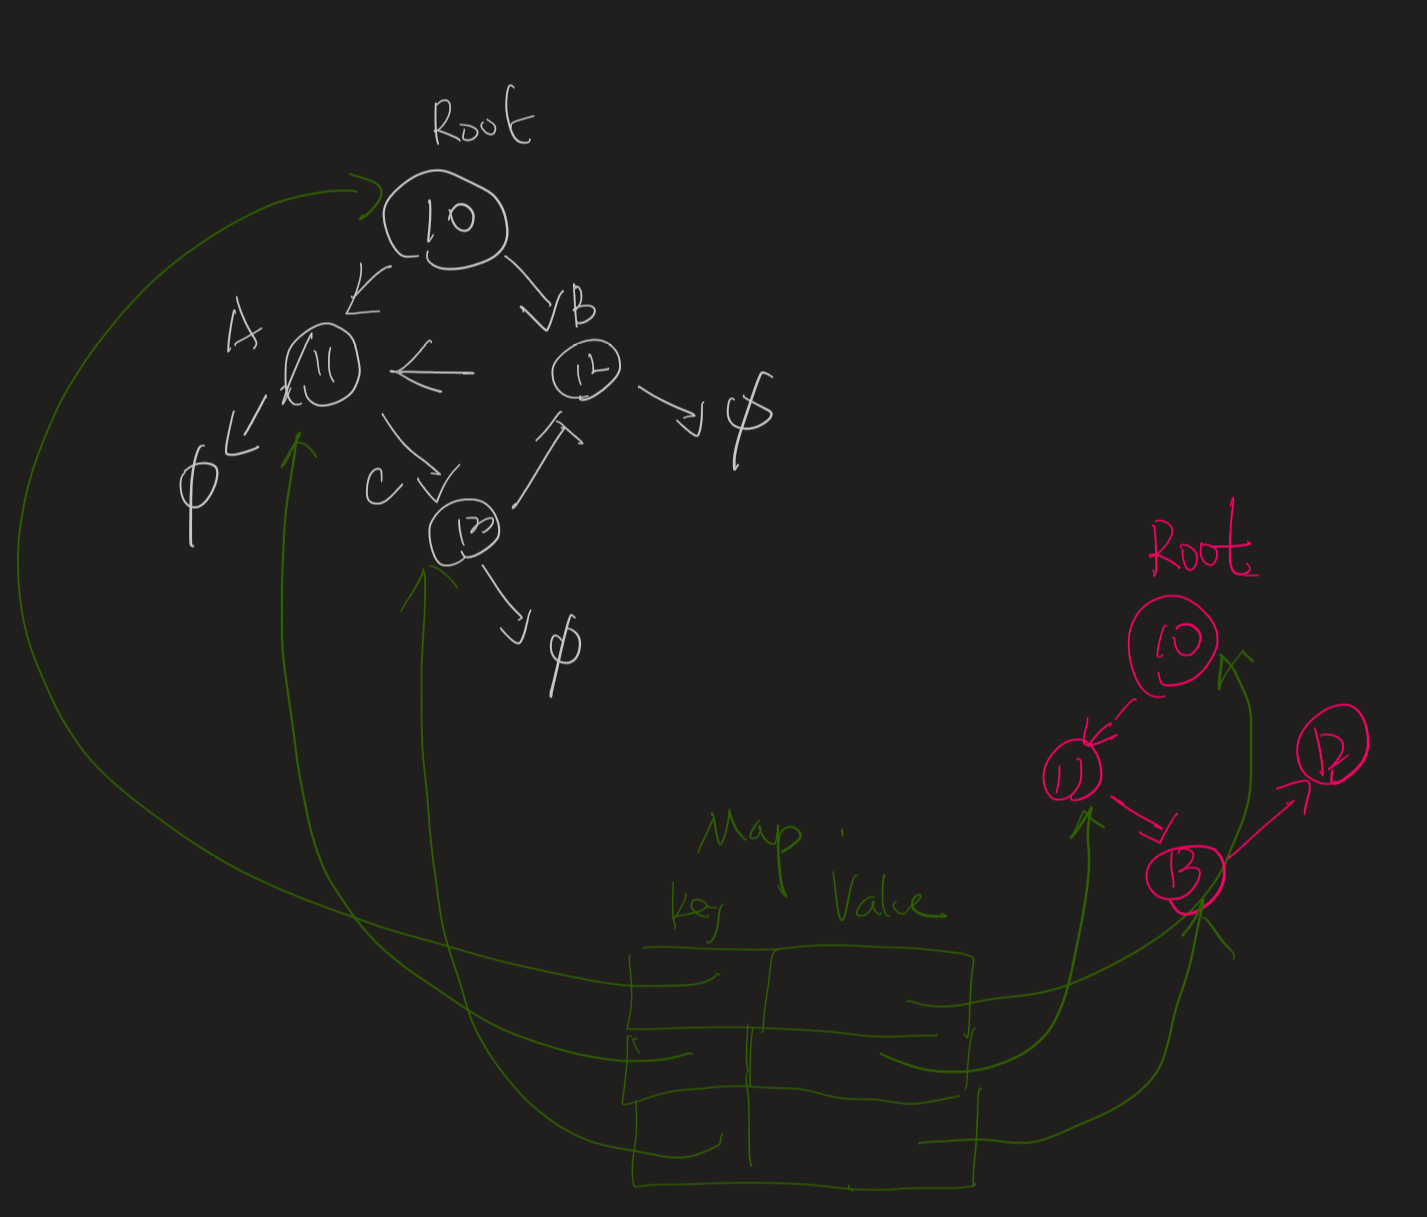 Root
10
A
B
11
12
φ
φ
C
13
φ
Root
10
11
12
13
Map :
Key
Value